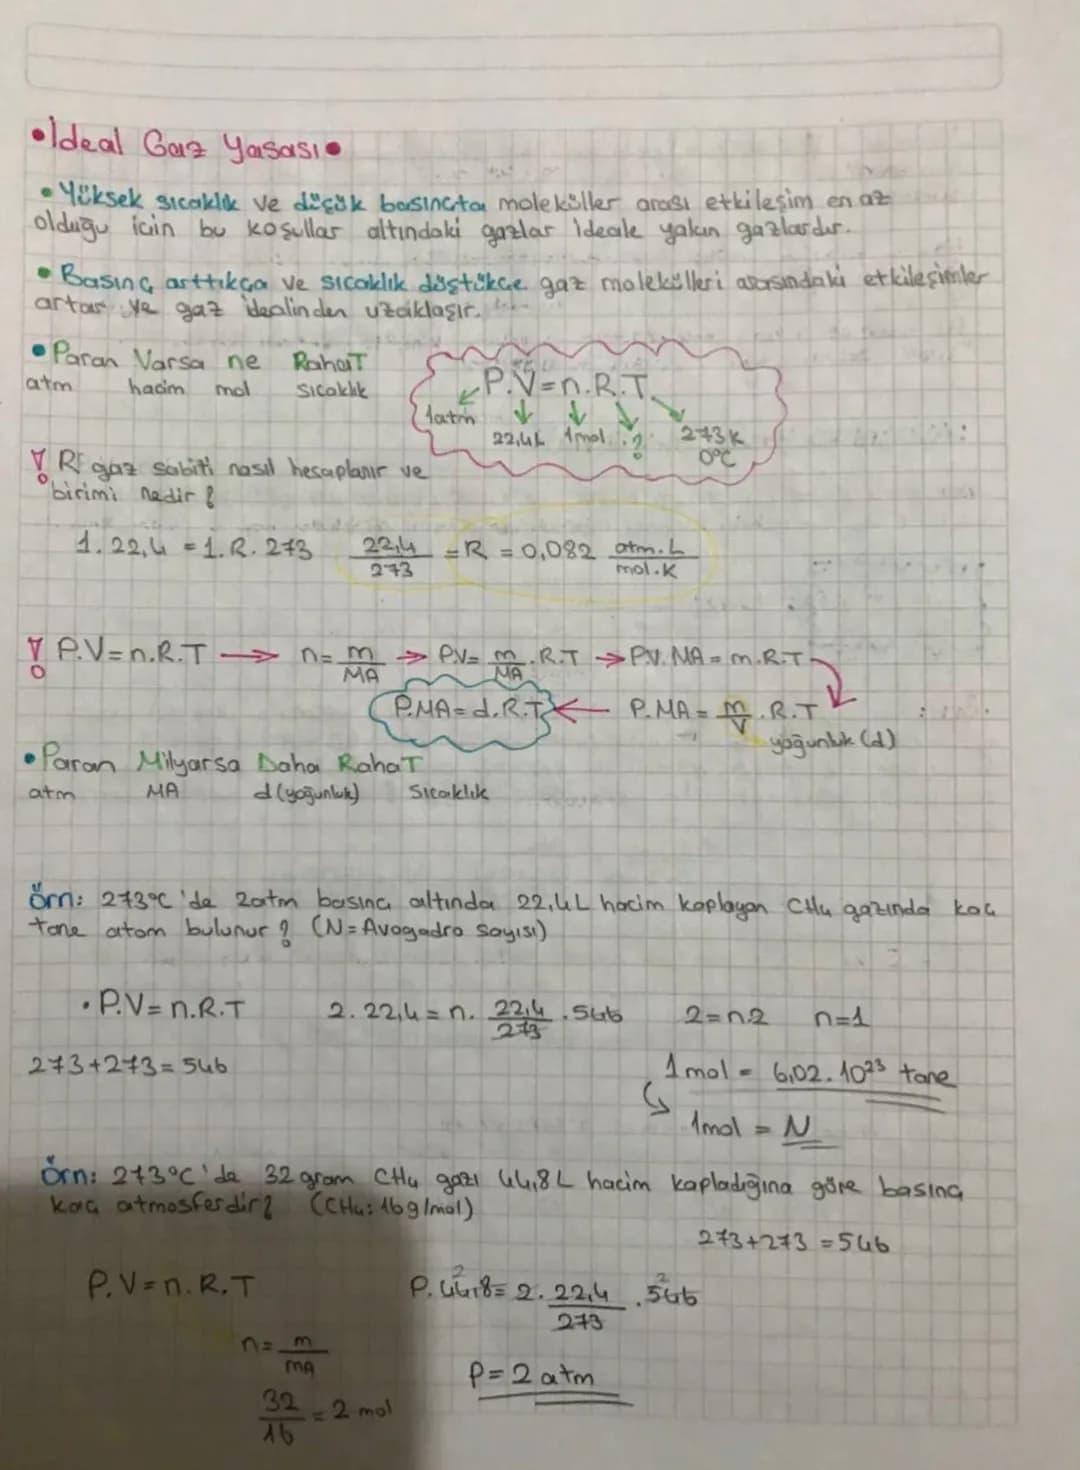 •İdeal Gaz Yasası•
• Yüksek sıcaklık ve düşük basınçta moleküller arası etkileşim en az
olduğu için bu koşullar altındaki gazlar ideale yakın gazlardır.
• Basınç arttıkça ve sıcaklık düştükçe gaz molekülleri arasındaki etkileşimler
artar ve gaz idealinden uzaklaşır.
• Paran Varsa ne RahaT
atm hacim mol sıcaklık
P.V=n.R.T
1atm 22,4L 1mol ? 273K
0°C
R gaz sabiti nasıl hesaplanır ve
birimi nedir?
1.22,4 = 1.R.273 22,4/273 = R = 0,082 atm.L/mol.K
P.V=n.R.T → n= m/MA → P.V= m/MA .R.T → P.V.MA = m.R.T
P.MA=d.R.T ← P.MA = m/V .R.T
yoğunluk (d)
• Paran Milyarsa Daha RahaT
atm MA d(yoğunluk) Sıcaklık
Örn: 273°C'de 2atm basınç altında 22,4L hacim kaplayan CH4 gazında kaç
tane atom bulunur? (N=Avogadro sayısı)
• P.V=n.R.T 2.22,4=n. 22,4/273 .546 2=n.2 n=1
273+273=546 1mol = 6,02.10²³ tane
1mol = N
Örn: 273°C'de 32 gram CH4 gazı 44,8L hacim kapladığına göre basınç
kaç atmosferdir? (CH4: 16g/mol)
273+273=546
P.V=n.R.T P.44,8= 2. 22,4/273 .546
2 2
n= m/mA
P=2 atm
32/16 = 2 mol